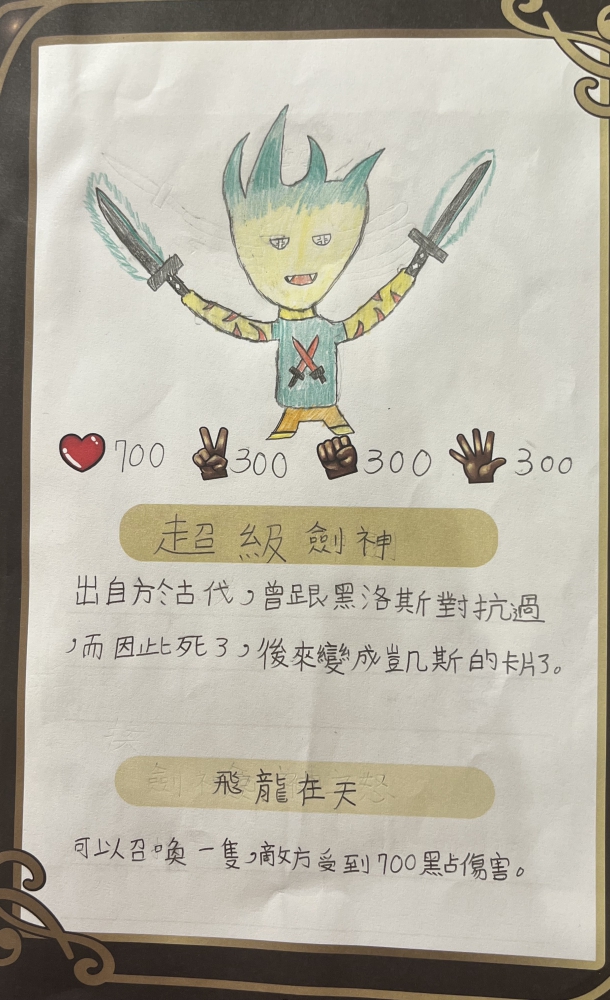 700 300 300 300
超級劍神
出自於古代，曾跟黑洛斯對抗過
，而因此死了，後來變成豈凡斯的卡片了。
飛龍在天
可以召喚一隻，敵方受到700點傷害。